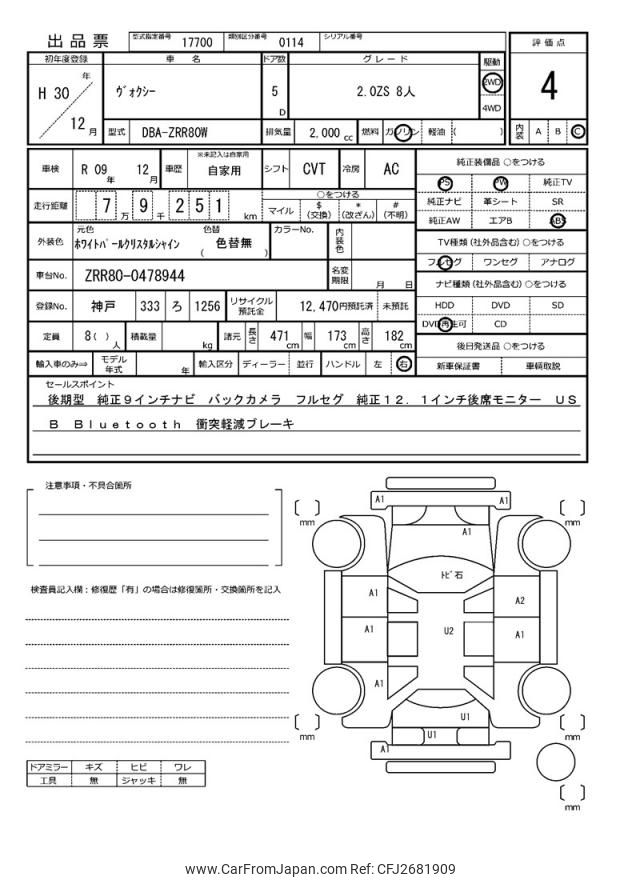 出品票 型式指定番号 17700 類別区分番号 0114 シリアル番号
評価点
初年度登録 車名 ドア数 グレード 駆動
H 30 年 12 月 ヴォクシー 5 D 2.0ZS 8人 2WD 4WD
4
型式 DBA-ZRR80W 排気量 2,000 cc 燃料 ガソリン 軽油 ( )
内装 A B C
車検 R 09 年 12 月 車歴 ※未記入は自家用 自家用 シフト CVT 冷房 AC
走行距離 7 万 9 千 2 5 1 km
○をつける
マイル $(交換) *(改ざん) #(不明)
外装色 元色 ホワイトパールクリスタルシャイン 色替 ( 色替無 ) カラーNo. 内装色
車台No. ZRR80-0478944 名変期限 月 日
登録No. 神戸 333 ろ 1256 リサイクル預託金 12,470円預託済 未預託
定員 8( ) 人 積載量 kg 諸元 長さ 471 cm 幅 173 cm 高さ 182 cm
輸入車のみ⇒ モデル年式 年 輸入区分 ディーラー 並行 ハンドル 左 右
純正装備品 ○をつける
PS PW 純正TV
純正ナビ 革シート SR
純正AW エアB ABS
TV種類 (社外品含む) ○をつける
フルセグ ワンセグ アナログ
ナビ種類 (社外品含む) ○をつける
HDD DVD SD
DVD再生可 CD
後日発送品 ○をつける
新車保証書 車輌取説
セールスポイント
後期型 純正９インチナビ バックカメラ フルセグ 純正１２．１インチ後席モニター ＵＳ
Ｂ Ｂｌｕｅｔｏｏｔｈ 衝突軽減ブレーキ
注意事項・不具合箇所
検査員記入欄：修復歴「有」の場合は修復箇所・交換箇所を記入
ドアミラー キズ ヒビ ワレ
工具 無 ジャッキ 無
A1 A1
mm mm
A1
トビ石
A1 A2
A1 U2 A1
A1
U1
mm U1 mm
A1
mm
www.CarFromJapan.com Ref: CFJ2681909